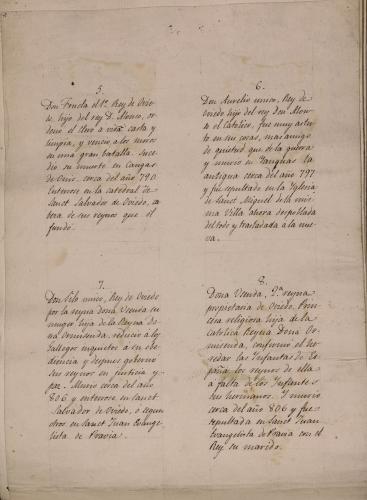 5.
Don Fruela el 1º Rey de Ovie-
do, hijo del rey D. Alonso, or-
denó el clero a vivir casta y
limpia, y venció a los moros
en una gran batalla. Suce-
dio su muerte en Cangas
de Onis cerca del año 790.
Enterose en la catedral de
Sanct Salvador de Oviedo, ca-
beza de sus reynos que el
fundó.
6.
Don Aurelio unico, Rey de
Oviedo hijo del rey don Alon-
so el Catolico, fue muy asten-
to en sus cosas, mas amigo
de quietud que de la guerra
y murio en Yanguas la
antigua cerca del año 797
y fue sepultado en la Iglesia
de Sanct Miguel de la mis-
ma Villa ahora despoblada
del todo y trasladada a la nue-
va.
7.
Don Silo unico, Rey de Oviedo
por la reyna Dona Usenda su
muger hija de la Reyna Do-
na Ormisenda, reducio a los
Gallegos inquietos a su obe-
diencia y despues governo
sus reynos en justicia y
paz. Murio cerca del año
806 y enterose en Sanct
Salvador de Oviedo, o segun
otros en Sanct Juan Evange-
lista de Pravia.
8.
Dona Usenda, 2ª reyna
propietaria de Oviedo. Prin-
cesa religiosa hija de la
Catolica Reyna Dona Or-
misenda, confirmo el he-
redar las Infantas de Es-
paña los reynos de ella
a falta de los Infantes
sus hermanos. Y murio
cerca del año 806 y fue
sepultada en Sanct Juan
Evangelista de Pravia con el
Rey su marido.